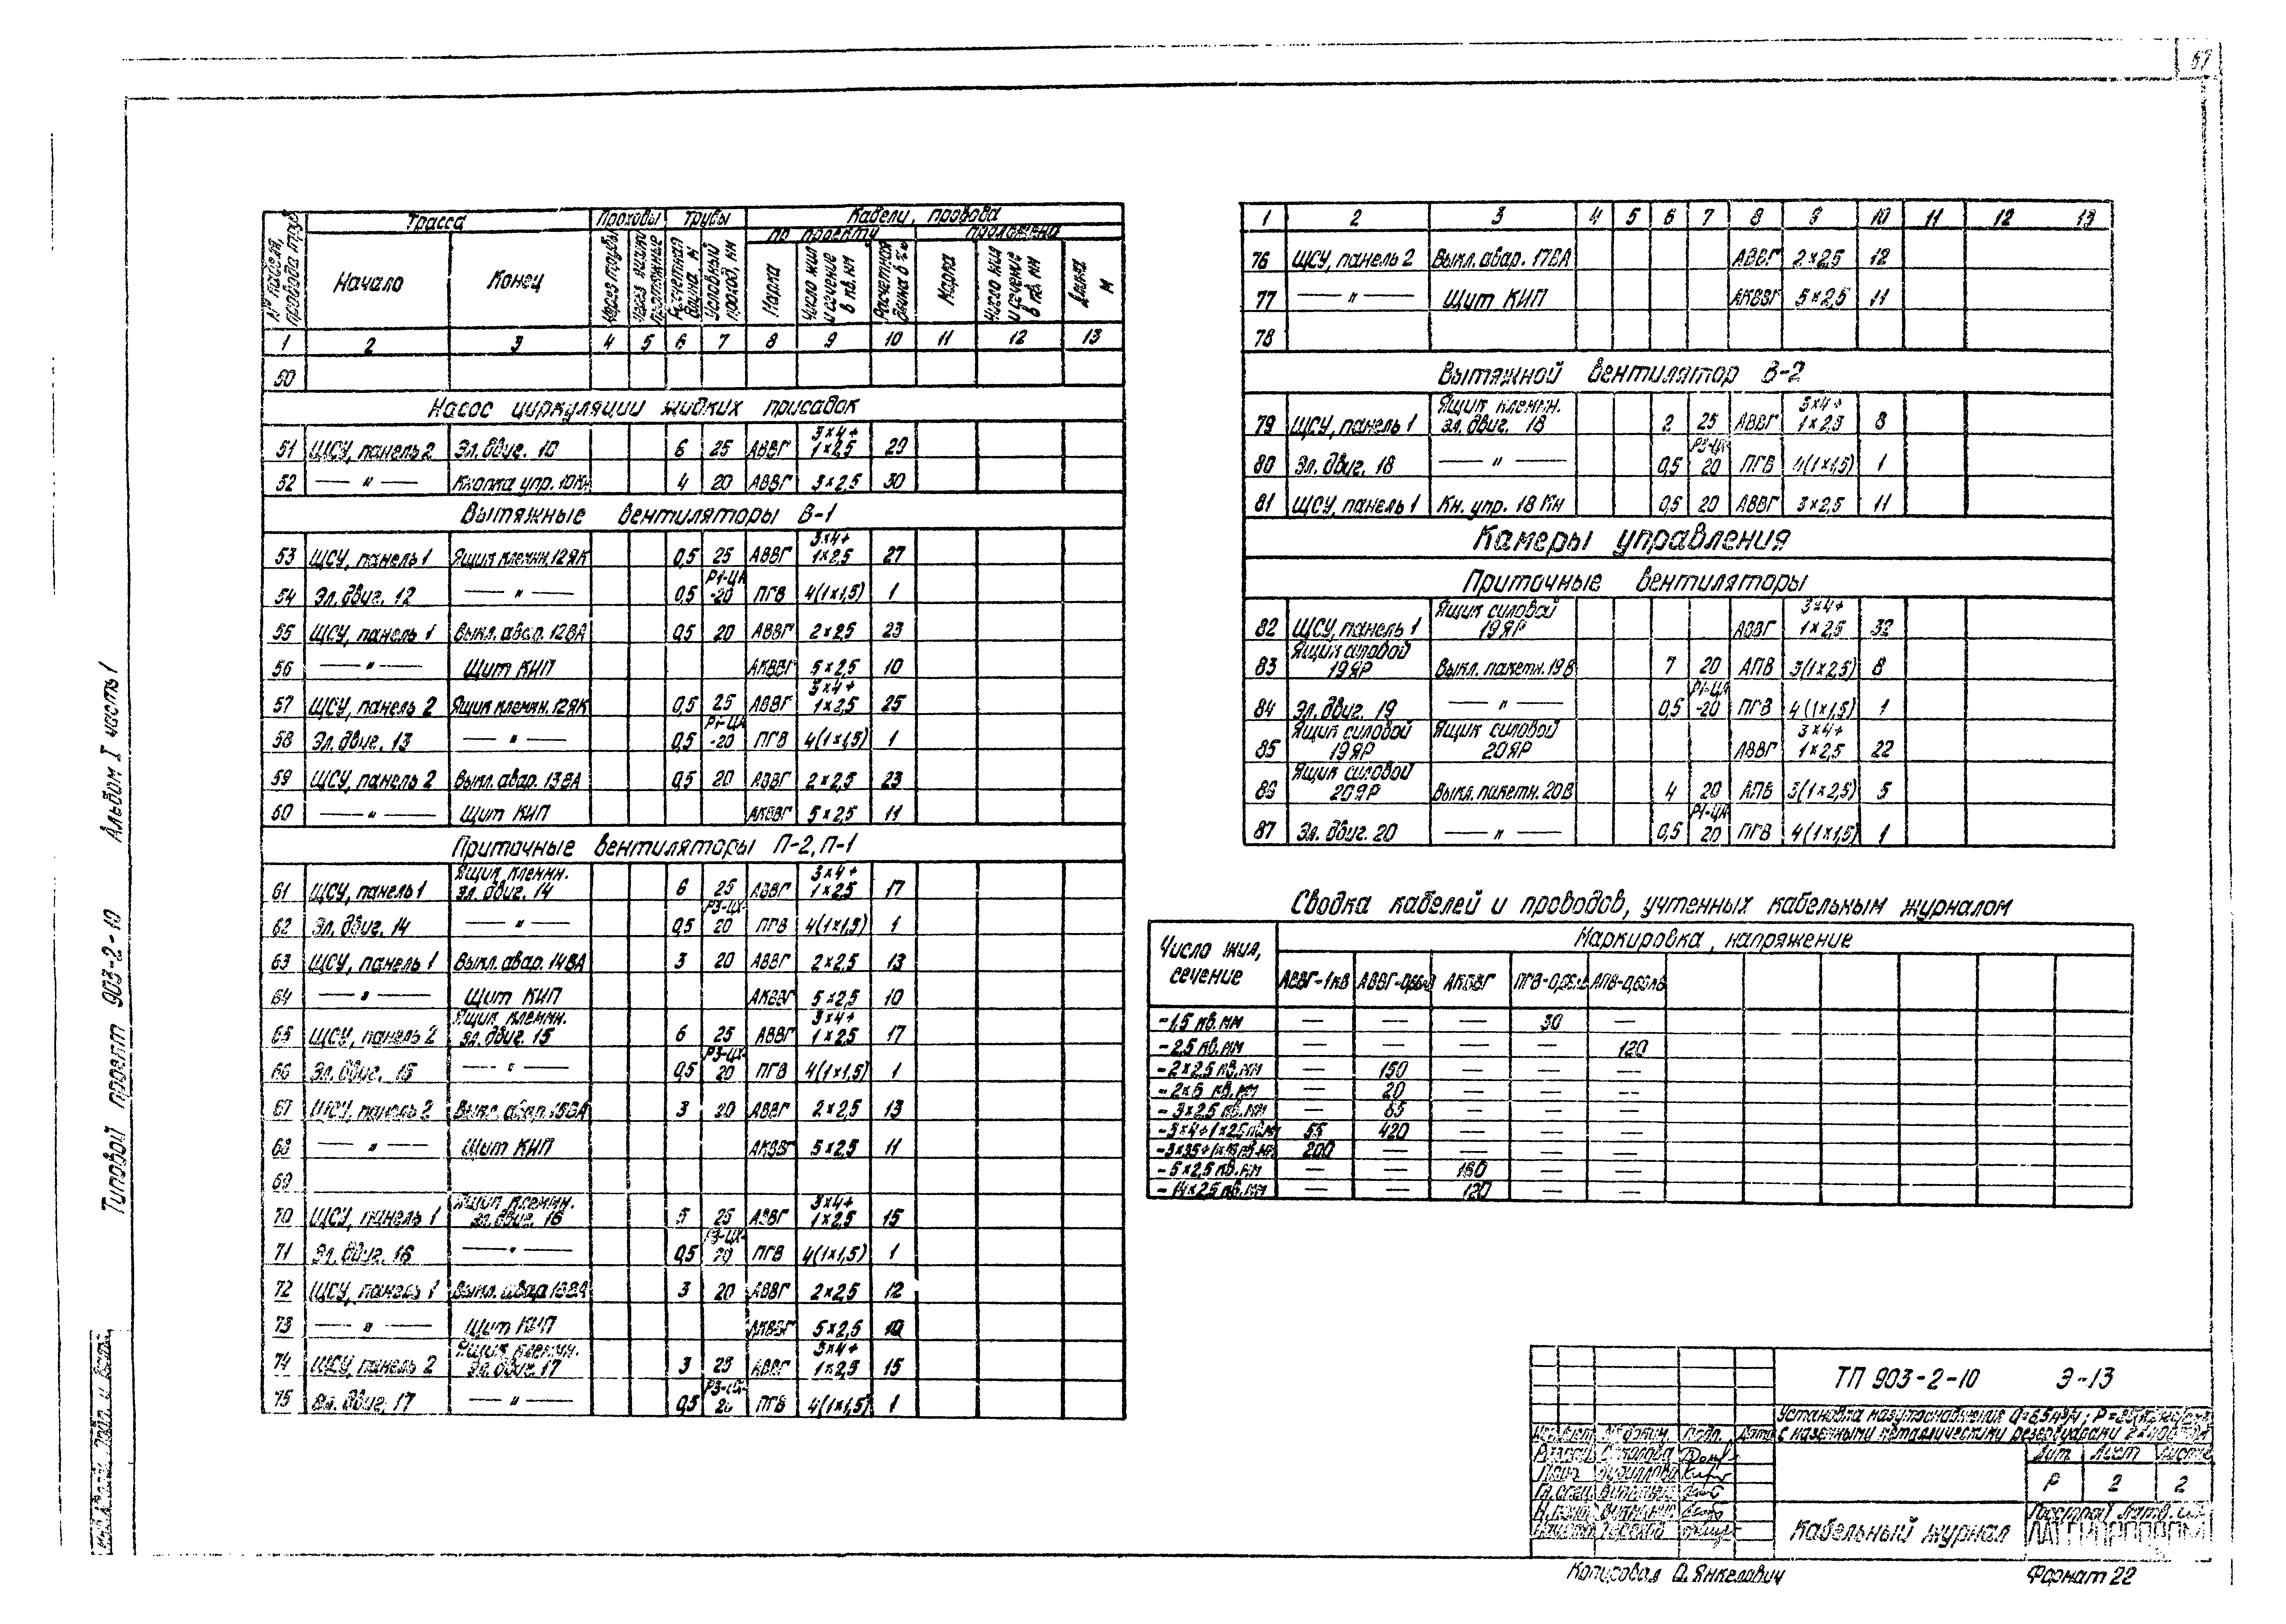 57
Типовой проект 903-2-10 Альбом I часть 1
№ кабеля, провода, труб Трасса Проходы Трубы Кабели, провода
по проекту проложено
Начало Конец Через трубы Расчетная длина м Условный проход, мм Марка Число жил и сечение в кв. мм Расчетная длина в т.ч. Марка Число жил и сечение в кв. мм Длина м
1 2 3 4 5 6 7 8 9 10 11 12 13
50
Насос циркуляции жидких присадок
51 ЩСУ, панель 2 Эл. двиг. 10 6 25 АВВГ 3×4+1×2,5 29
52 —〃— Кнопка упр. 10Кн 4 20 АВВГ 3×2,5 30
Вытяжные вентиляторы В-1
53 ЩСУ, панель 1 Ящик клеммн. 12ЯК 0,5 25 АВВГ 3×4+1×2,5 27
54 Эл. двиг. 12 —〃— 0,5 Р1-ЦА-20 ПГВ 4(1×1,5) 1
55 ЩСУ, панель 1 Выкл. авар. 12ВА 0,5 20 АВВГ 2×2,5 23
56 —〃— Щит КИП АКВВГ 5×2,5 10
57 ЩСУ, панель 2 Ящик клеммн. 12ЯК 0,5 25 АВВГ 3×4+1×2,5 25
58 Эл. двиг. 13 —〃— 0,5 Р1-ЦА-20 ПГВ 4(1×1,5) 1
59 ЩСУ, панель 2 Выкл. авар. 13ВА 0,5 20 АВВГ 2×2,5 23
60 —〃— Щит КИП АКВВГ 5×2,5 11
Приточные вентиляторы П-2, П-1
61 ЩСУ, панель 1 Ящик клеммн. эл. двиг. 14 6 25 АВВГ 3×4+1×2,5 17
62 Эл. двиг. 14 —〃— 0,5 Р3-ЦХ-20 ПГВ 4(1×1,5) 1
63 ЩСУ, панель 1 Выкл. авар. 14ВА 3 20 АВВГ 2×2,5 13
64 —〃— Щит КИП АКВВГ 5×2,5 10
65 ЩСУ, панель 2 Ящик клеммн. эл. двиг. 15 6 25 АВВГ 3×4+1×2,5 17
66 Эл. двиг. 15 —〃— 0,5 Р3-ЦХ-20 ПГВ 4(1×1,5) 1
67 ЩСУ, панель 2 Выкл. авар. 15ВА 3 20 АВВГ 2×2,5 13
68 —〃— Щит КИП АКВВГ 5×2,5 11
69
70 ЩСУ, панель 1 Ящик клеммн. эл. двиг. 16 5 25 АВВГ 3×4+1×2,5 15
71 Эл. двиг. 16 —〃— 0,5 Р3-ЦХ-20 ПГВ 4(1×1,5) 1
72 ЩСУ, панель 1 Выкл. авар. 16ВА 3 20 АВВГ 2×2,5 12
73 —〃— Щит КИП АКВВГ 5×2,5 10
74 ЩСУ, панель 2 Ящик клеммн. Эл. двиг. 17 3 25 АВВГ 3×4+1×2,5 15
75 Эл. двиг. 17 —〃— 0,5 Р3-ЦХ-20 ПГВ 4(1×1,5) 1
1 2 3 4 5 6 7 8 9 10 11 12 13
76 ЩСУ, панель 2 Выкл. авар. 17ВА АВВГ 2×2,5 12
77 —〃— Щит КИП АКВВГ 5×2,5 11
78
Вытяжной вентилятор В-2
79 ЩСУ, панель 1 Ящик клеммн. эл. двиг. 18 2 25 АВВГ 3×4+1×2,5 8
80 Эл. двиг. 18 —〃— 0,5 Р3-ЦХ 20 ПГВ 4(1×1,5) 1
81 ЩСУ, панель 1 Кн. упр. 18 Кн 0,5 20 АВВГ 3×2,5 11
Камеры управления
Приточные вентиляторы
82 ЩСУ, панель 1 Ящик силовой 19ЯР АВВГ 3×4+1×2,5 32
83 Ящик силовой 19ЯР Выкл. пакетн. 19В 7 20 АПВ 3(1×2,5) 8
84 Эл. двиг. 19 —〃— 0,5 Р1-ЦА-20 ПГВ 4(1×1,5) 1
85 Ящик силовой 19ЯР Ящик силовой 20ЯР АВВГ 3×4+1×2,5 22
86 Ящик силовой 20ЯР Выкл. пакетн. 20В 4 20 АПВ 3(1×2,5) 5
87 Эл. двиг. 20 —〃— 0,5 Р1-ЦА 20 ПГВ 4(1×1,5) 1
Сводка кабелей и проводов, учтенных кабельным журналом
Число жил, сечение Маркировка, напряжение
АВВГ-1кВ АВВГ-0,66кВ АКВВГ ПГВ-0,66кВ АПВ-0,66кВ
-1,5 кв.мм — — — 30 —
-2,5 кв.мм — — — — 120
-2×2,5 кв.мм — 150 — — —
-2×6 кв.мм — 20 — — —
-3×2,5 кв.мм — 85 — — —
-3×4+1×2,5 кв.мм 55 420 — — —
-3×35+1×16 кв.мм 200 — — — —
-5×2,5 кв.мм — — 160 — —
-14×2,5 кв.мм — — 120 — —
ТП 903-2-10 Э-13
Установка мазутоснабжения Q=6,5м³/ч; Р=25
с наземными металлическими резервуарами
Лит. Лист Листов
Р 2 2
Кабельный журнал
Копировал О. Янкелович Формат 22